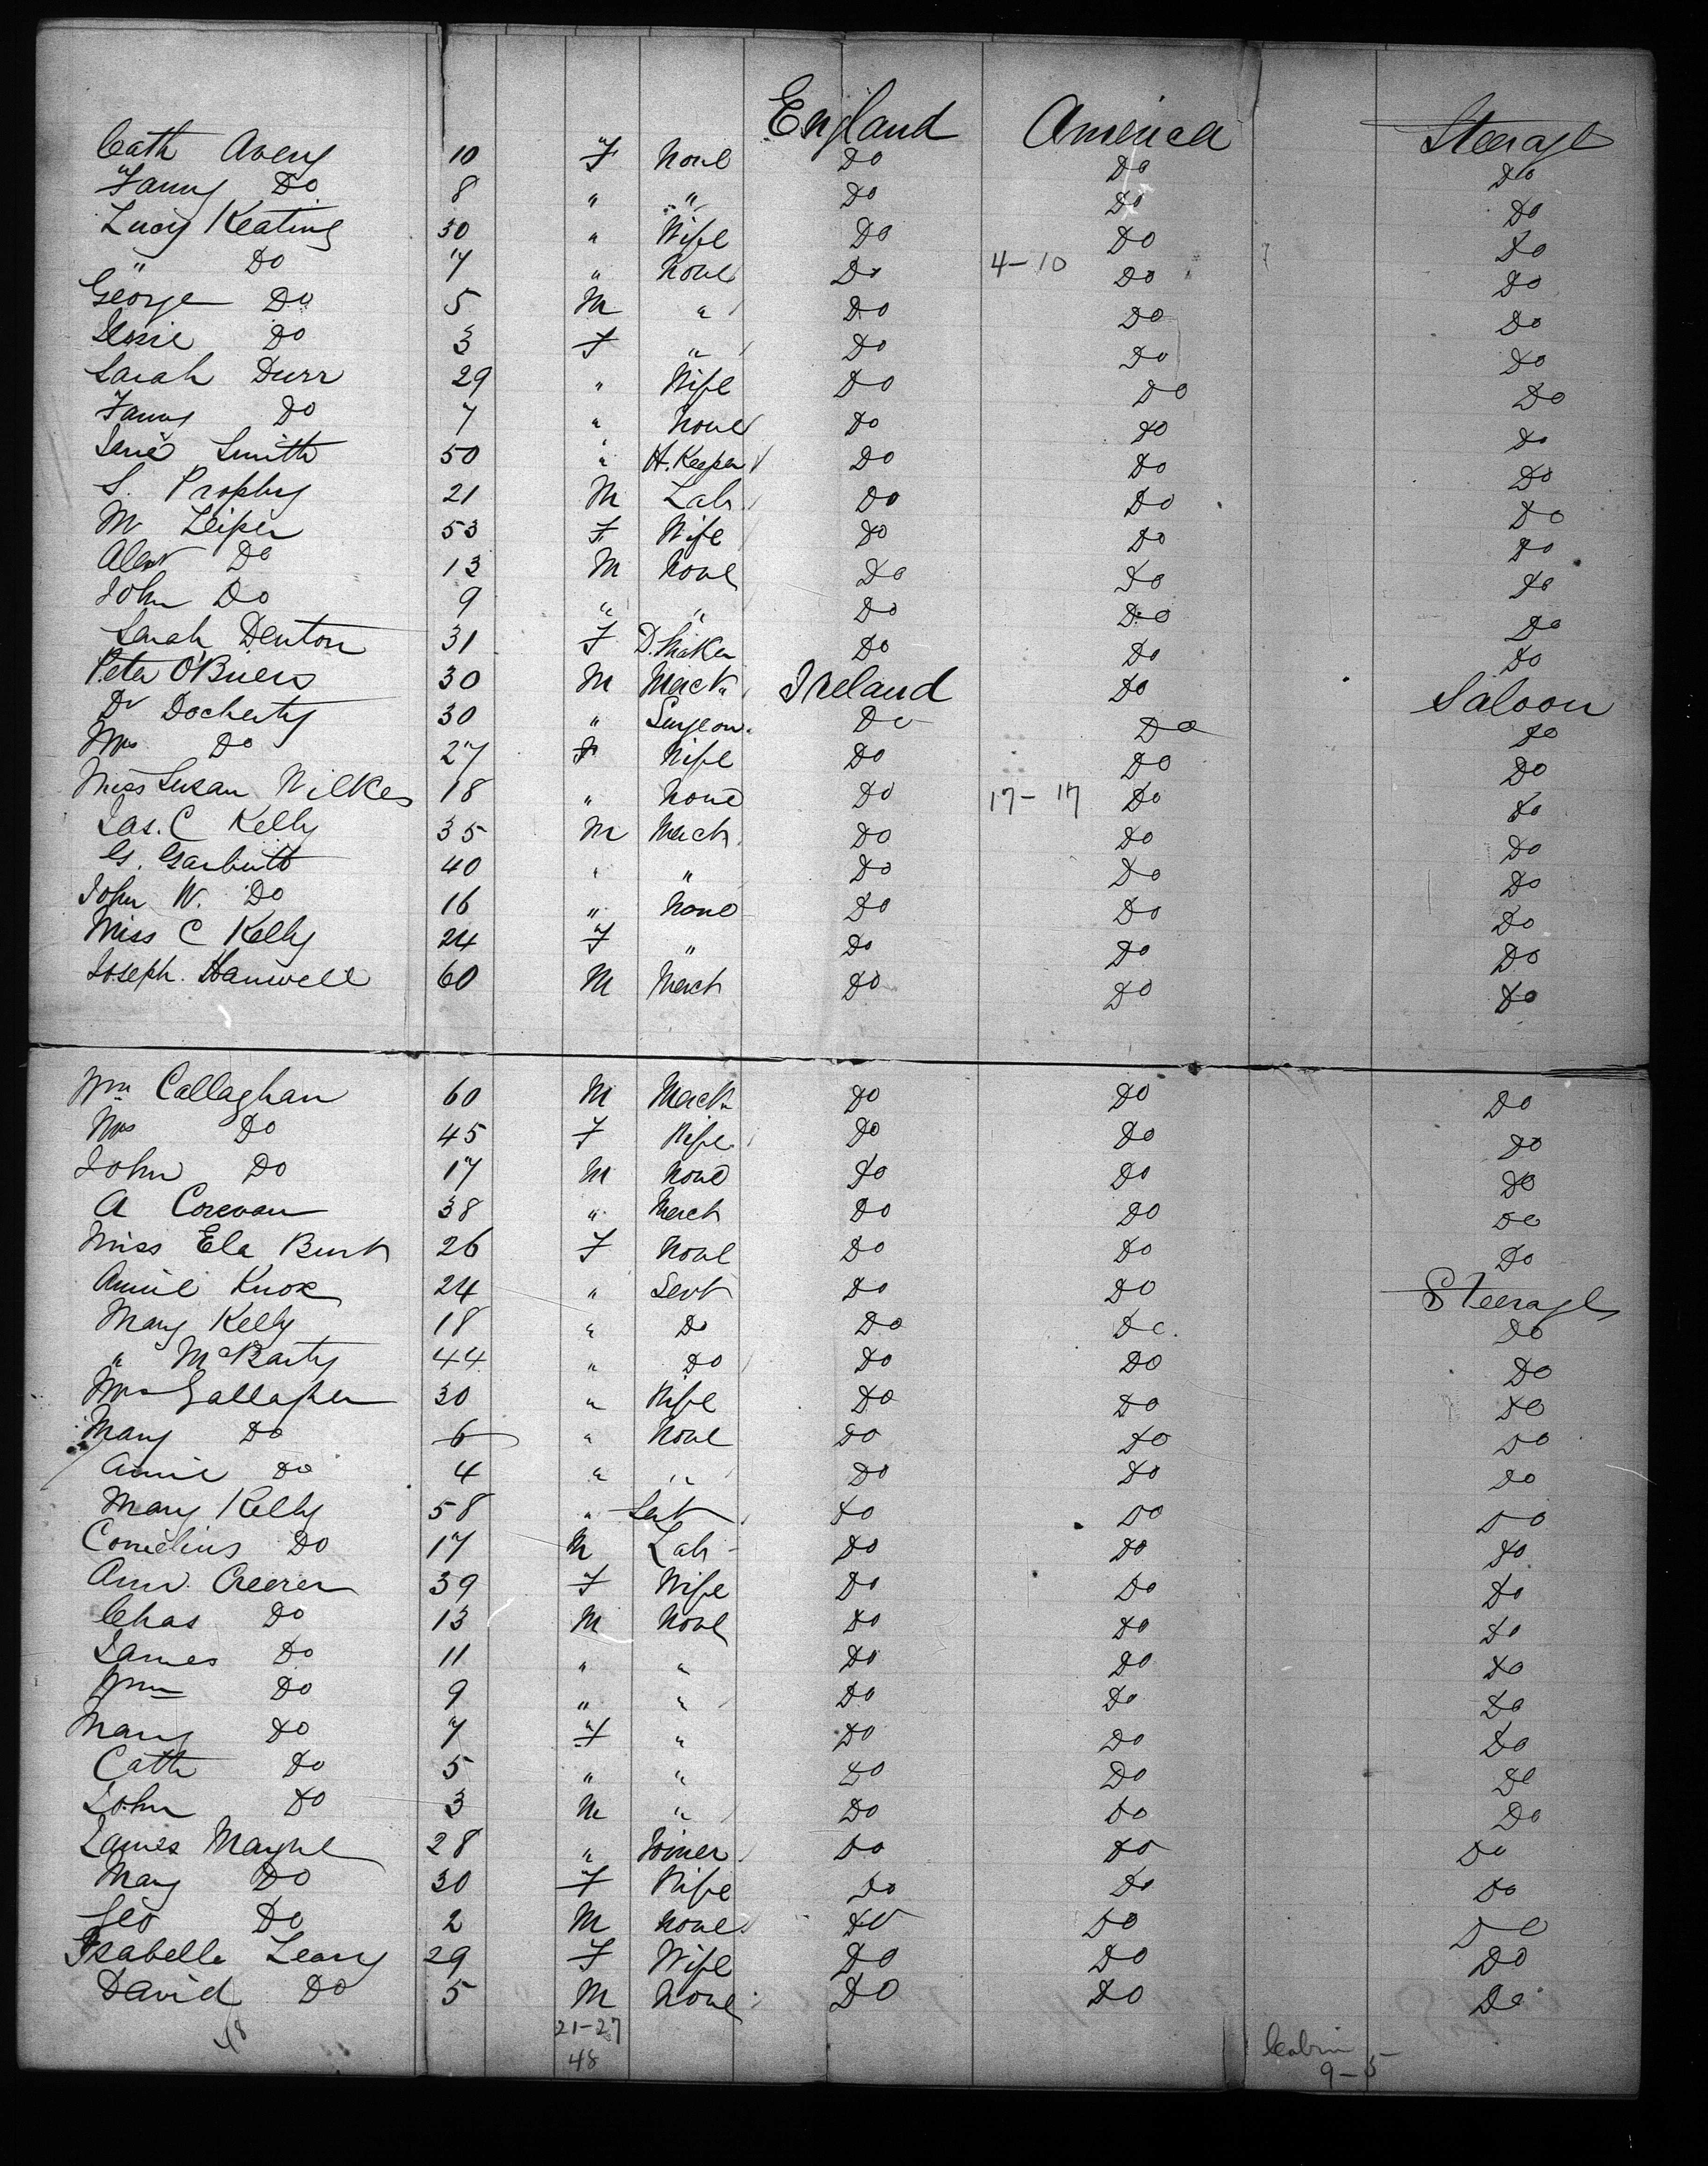 England America Steerage
Cath Avery 10 F None Do Do Do
Fanny Do 8 " " Do Do Do
Lucy Keating 30 " Wife Do Do Do
" Do 7 " None Do 4-10 Do Do
George Do 5 M " Do Do Do
Do 3 F " Do Do Do
Sarah Durr 29 " Wife Do Do Do
Fanny Do 7 " None Do Do Do
Jane Smith 50 " H. Keeper Do Do Do
S. Prophy 21 M Lab. Do Do Do
M Leiper 53 F Wife Do Do Do
Alexr Do 13 M None Do Do Do
John Do 9 " " Do Do Do
Sarah Denton 31 F D. Maker Do Do Do
Peter O'Brien 30 M Mercht Ireland Do Saloon
Dr Docherty 30 " Surgeon. Do Do Do
Mrs Do 27 F Wife Do Do Do
Miss Susan Wilkes 18 " None Do 17-17 Do Do
Jas. C Kelly 35 M Merch Do Do Do
G. Garbutt 40 " " Do Do Do
John W. Do 16 " None Do Do Do
Miss C Kelly 24 F " Do Do Do
Joseph. Hanwell 60 M Merch Do Do Do
Wm Callaghan 60 M Merch Do Do Do
Mrs Do 45 F Wife Do Do Do
John Do 17 M None Do Do Do
A Corevan 38 " Merch Do Do Do
Miss Ela Burk 26 F None Do Do Do
Annie Knox 24 " Servt Do Do Steerage
Mary Kelly 18 " Do Do Do Do
" McBarty 44 " Do Do Do Do
Mrs Gallagher 30 " Wife Do Do Do
Mary Do 6 " None Do Do Do
Annie Do 4 " " Do Do Do
Mary Kelly 58 " Servt Do Do Do
Cornelius Do 17 M Lab Do Do Do
Ann Creerer 39 F Wife Do Do Do
Chas Do 13 M None Do Do Do
James Do 11 " " Do Do Do
Wm Do 9 " " Do Do Do
Mary Do 7 F " Do Do Do
Cath Do 5 " " Do Do Do
John Do 3 M " Do Do Do
James Mayne 28 " Joiner Do Do Do
Mary Do 30 F Wife Do Do Do
Geo Do 2 M None Do Do Do
Isabella Leary 29 F Wife Do Do Do
David Do 5 M None Do Do Do
48 21-27
48 Cabin
9-5